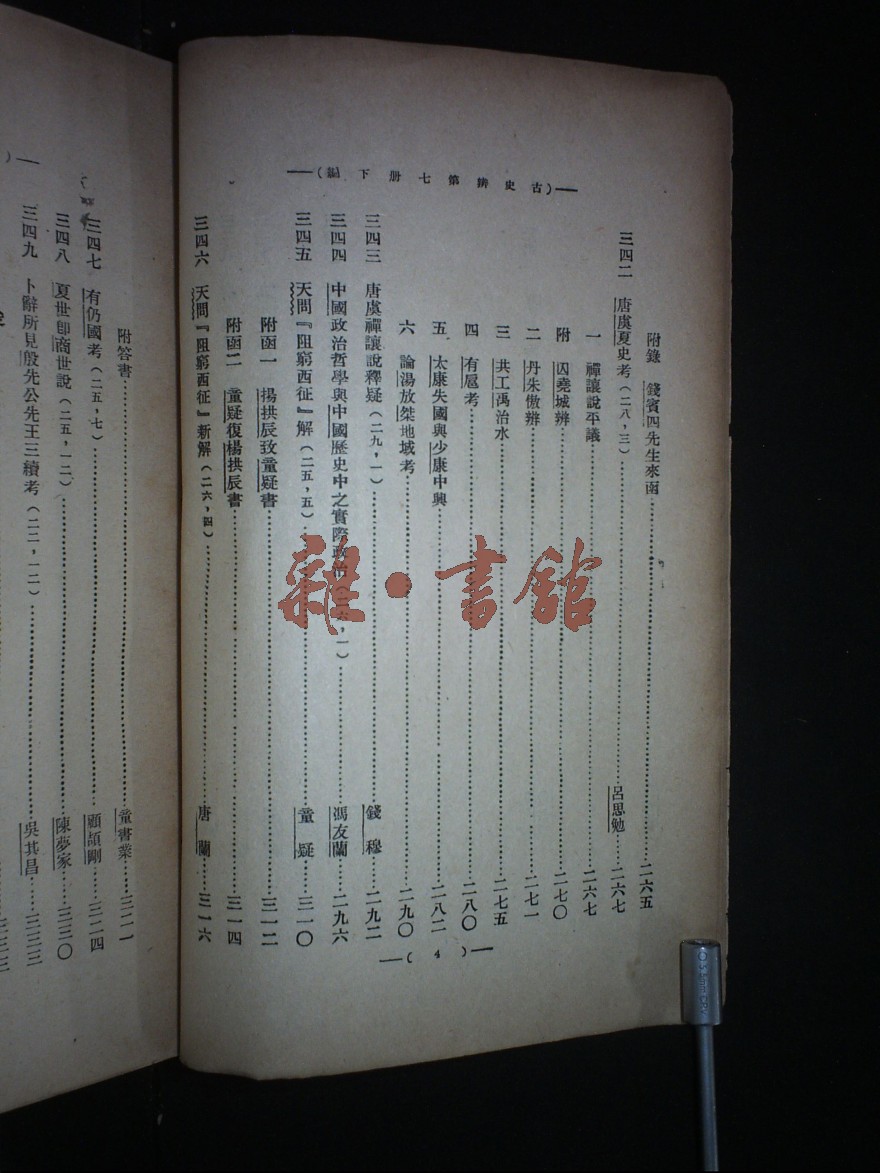 古史辨第七册下編
附錄 錢賓四先生來函 二六五
三四二 唐虞夏史考(二八,三) 呂思勉 二六七
一 禪讓說平議 二六七
附 囚堯城辨 二七〇
二 丹朱傲辨 二七一
三 共工禹治水 二七五
四 有扈考 二八〇
五 太康失國與少康中興 二八二
六 論湯放桀地域考 二九〇
三四三 唐虞禪讓說釋疑(二九,一) 錢穆 二九二
三四四 中國政治哲學與中國歷史中之實際政治(二六,一) 馮友蘭 二九六
三四五 天問『阻窮西征』解(二五,五) 童疑 三一〇
附函一 揚拱辰致童疑書 三一二
附函二 童疑復楊拱辰書 三一四
三四六 天問『阻窮西征』新解(二六,四) 唐蘭 三一六
(4)
附答書 童書業 三二一
三四七 有仍國考(二五,七) 顧頡剛 三二四
三四八 夏世卽商世說(二五,一二) 陳夢家 三三〇
三四九 卜辭所見殷先公先王三續考(二二,一二) 吳其昌 三三三
雜·書館